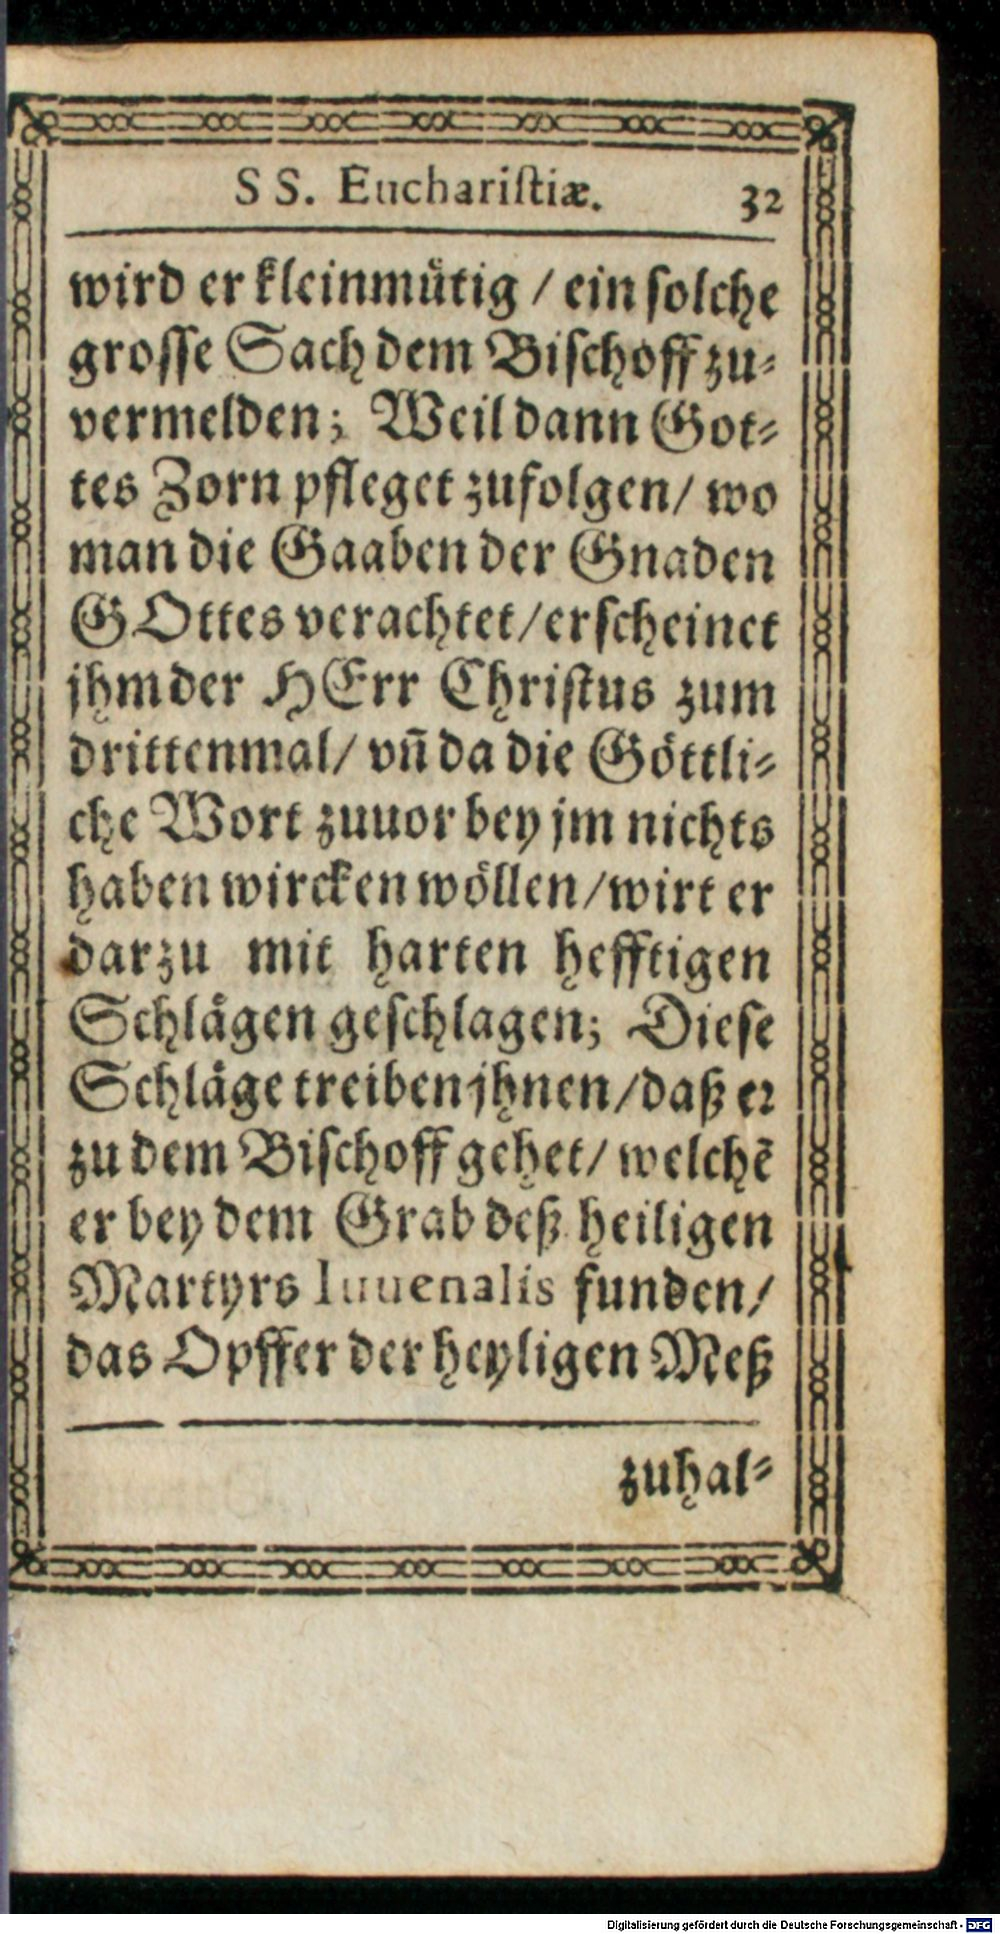 SS. Euchariſtiæ. 32
wird er kleinmütig / ein ſolche
groſſe Sach dem Biſchoff zu⸗
vermelden; Weil dann Got⸗
tes Zorn pfleget zufolgen / wo
man die Gaaben der Gnaden
GOttes verachtet / erſcheinet
jhm der HErr Chriſtus zum
drittenmal / vñ da die Göttli⸗
che Wort zuuor bey jm nichts
haben wircken wöllen / wirt er
darzu mit harten hefftigen
Schlägen geſchlagen; Dieſe
Schläge treiben jhnen / daß er
zu dem Biſchoff gehet / welchẽ
er bey dem Grab deß heiligen
Martyrs Iuuenalis funden /
das Opffer der heyligen Meß
zuhal⸗
Digitalisierung gefördert durch die Deutsche Forschungsgemeinschaft - DFG